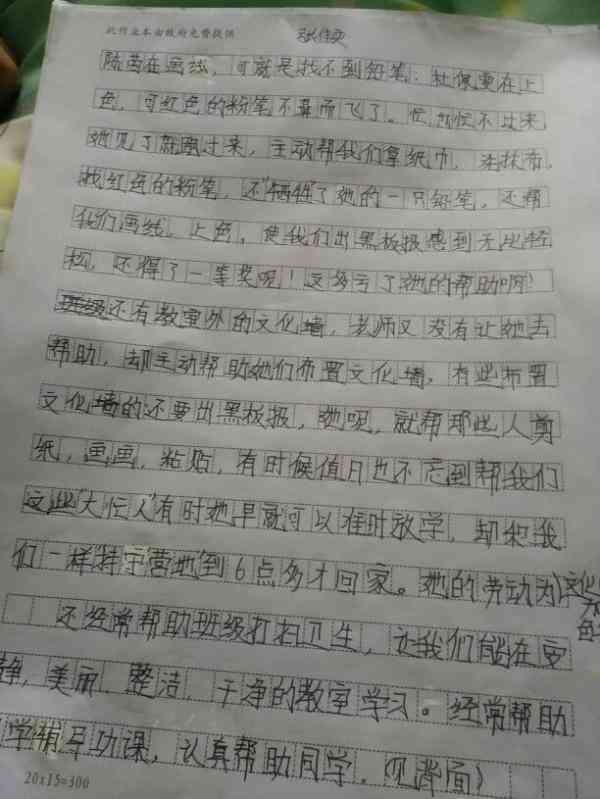 此作业本由政府免费提供
陈茜在画线，可就是找不到铅笔；杜佩雯在上
色，可红色的粉笔不翼而飞了。忙忙不过来，
她见了就跑过来，主动帮我们拿纸巾，洗抹布，
找红色的粉笔，还“牺牲”了她的一只铅笔，还帮
我们画线，上色，使我们出黑板报感到无比轻
松，还得了一等奖呢！这多亏了她的帮助啊！
还有教室外的文化墙，老师又没有让她去
帮助，却主动帮助她们布置文化墙，有些布置
文化墙的还要出黑板报，她呢，就帮那些人剪
纸，画画，粘贴，有时候值日也不忘到帮我们
这些“大忙人”有时她早就可以准时放学，却和我
们一样持守营地到6点多才回家。她的劳动为文化
还经常帮助班级打扫卫生，让我们能在安
静，美丽，整洁，干净的教室学习。经常帮助
学辅导功课，认真帮助同学，（见背面）
20x15=300